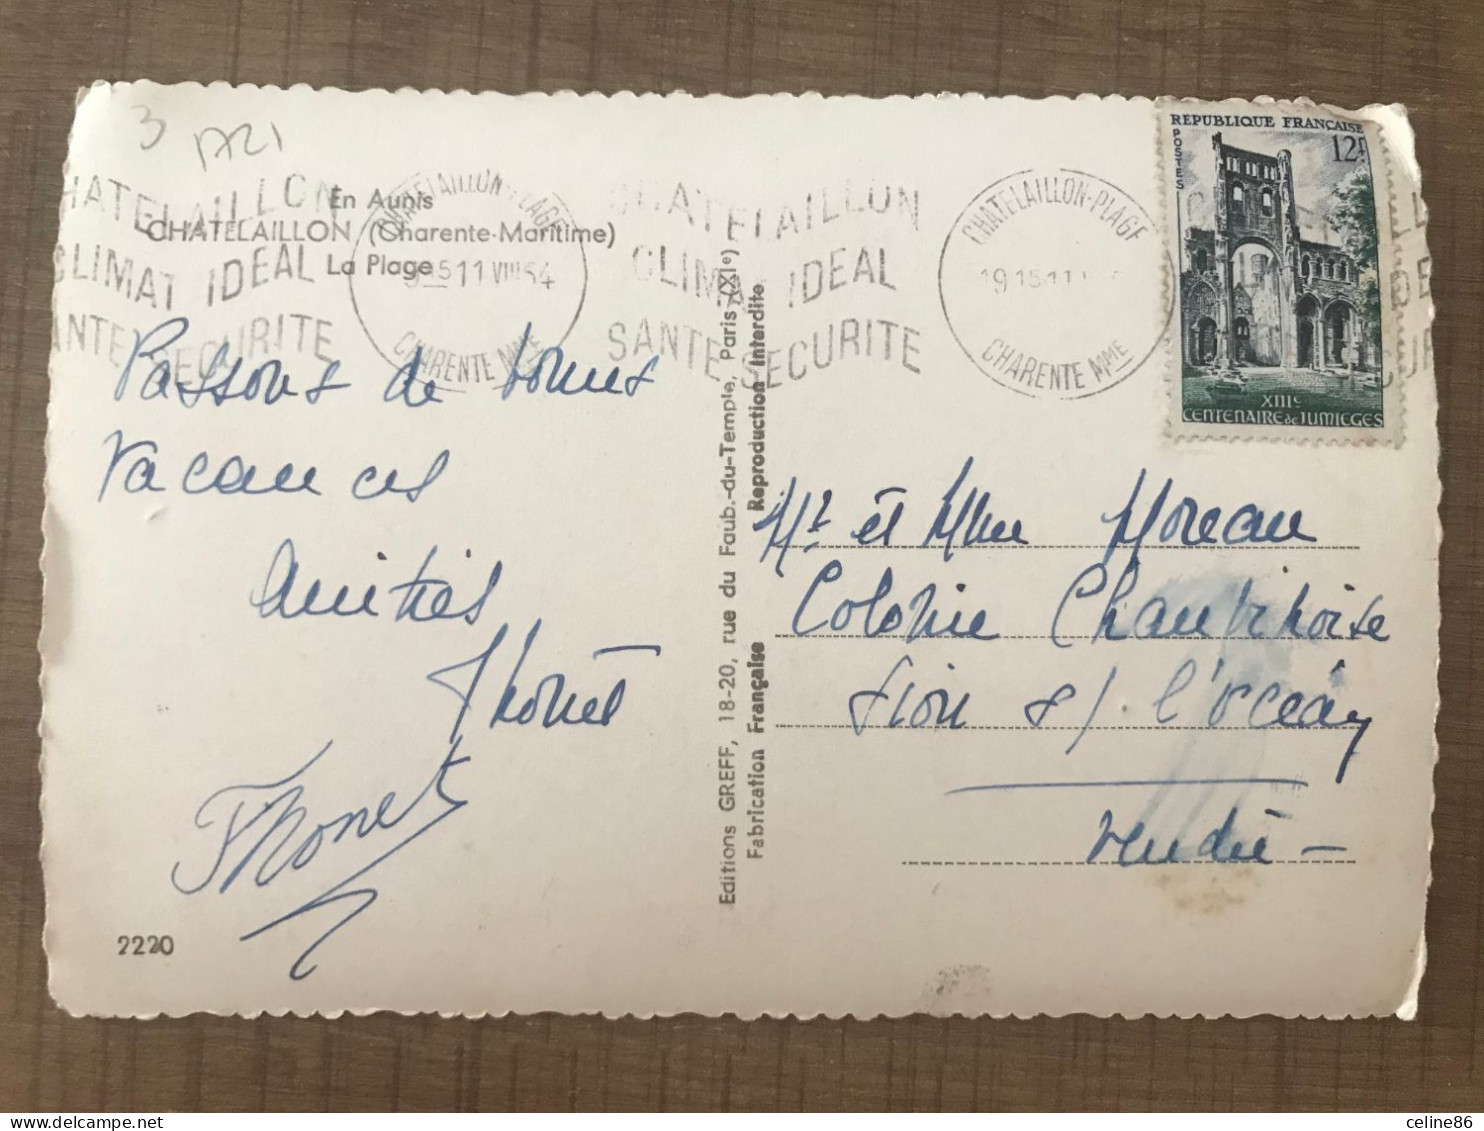 3
1721
En Aunis
CHATELAILLON (Charente-Maritime)
La Plage
HATELAILLON
CLIMAT IDEAL
SANTE SECURITE
CHATELAILLON-PLAGE
11 VIII 54
CHARENTE Mme
CHATELAILLON
CLIMAT IDEAL
SANTE SECURITE
CHATELAILLON-PLAGE
19 15 11
CHARENTE Mme
REPUBLIQUE FRANÇAISE
POSTES
12F
XIIIe
CENTENAIRE de JUMIEGES
Passons de bonnes
vacances
Amitiés
Thonet
Thonet
2220
Editions GREFF, 18-20, rue du Faub.-du-Temple, Paris (XIe)
Fabrication Française Reproduction Interdite
Mr et Mme Moreau
Colonie Chantenoise
Sion s/. l'Océan
Vendée -
celine86